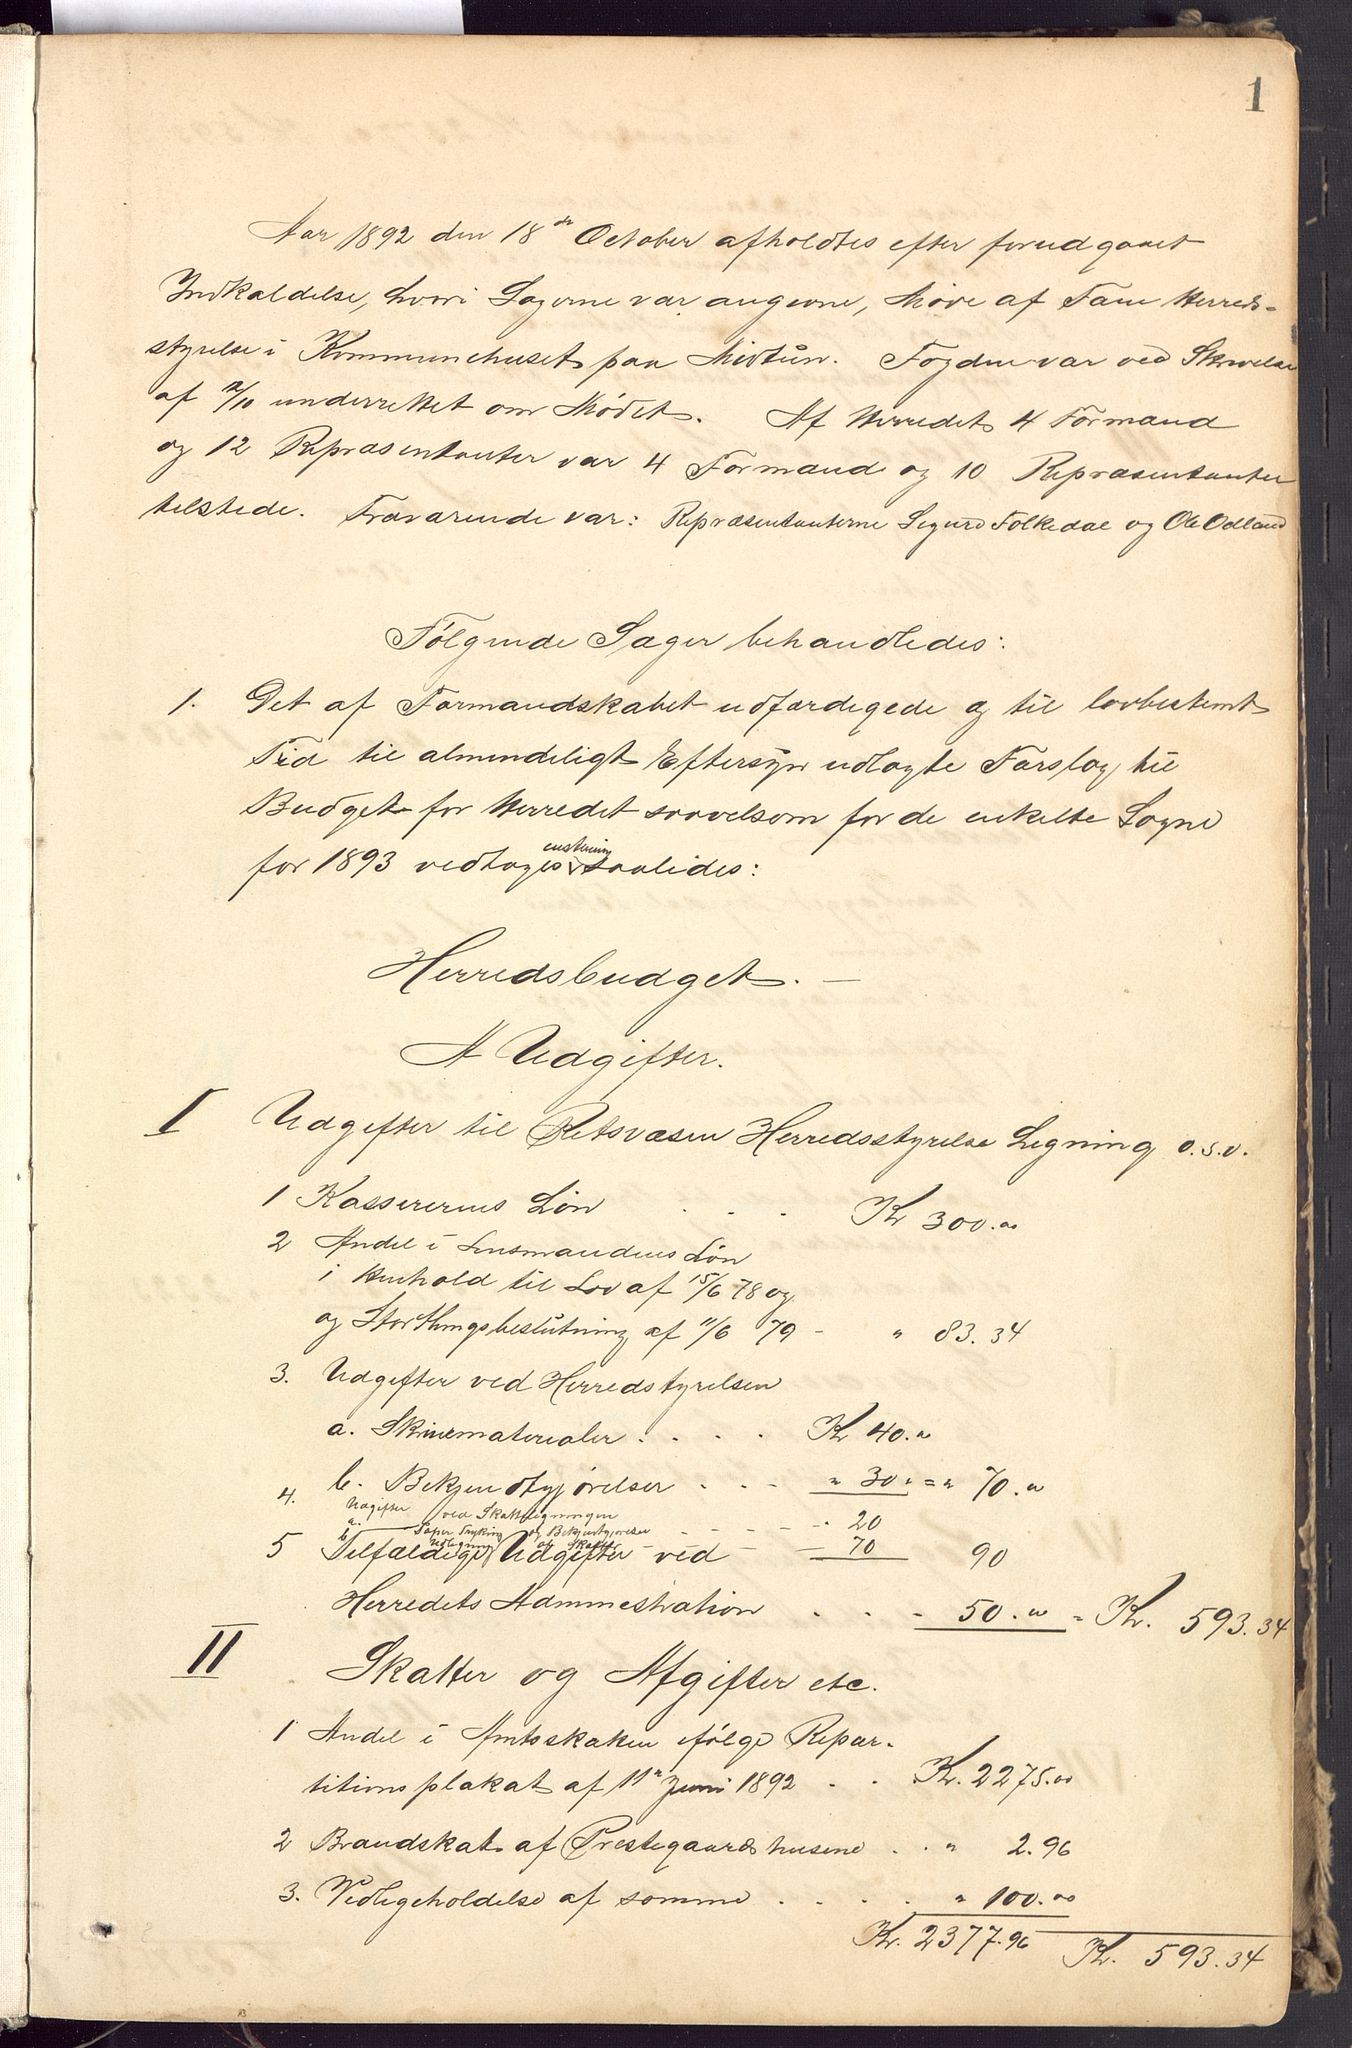 1
Aar 1892 den 18de October afholdtes efter forudgaaet
Indkaldelse, hvori Sagerne var angivne, Møde af Fane Herreds-
styrelse i Kommunehuset paa Midtun. Fogden var ved Skrivelse
af /10 underrettet om Mødet. Af Herredets 4 Formænd
og 12 Repræsentanter var 4 Formænd og 10 Repræsentanter
tilstede. Fraværende var: Repræsentanterne Sigurd Folkedal og Ole Ødland
Følgende Sager behandledes:
1. Det af Formandskabet udfærdigede og til lovbestemt
Tid til almindeligt Eftersyn udlagte Forslag til
Budget for Herredet saavelsom for de enkelte Sogne
enstemmig
for 1893 vedtoges saaledes:
Herredsbudget. —
A Udgifter.
I Udgifter til Retsvæsen Herredsstyrelse Ligning o.s.v.
1 Kassererens Løn . . . Kr 300.00
2 Andel i Lensmandens Løn
i Henhold til Lov af 15/6 78 og
og Storthingsbeslutning af 11/6 79 - " 83.34
3. Udgifter ved Herredstyrelsen
a. Skrivematerialer . . . . Kr 40.00
b. Bekjendtgjørelser . . . " 30 " = " 70.00
4. Udgifter ved Skatteligningen
a. - - - - 20
b. Papir Trykning og Bekjendtgjørelser
Udligning og Skatter 70 90
5 Tilfældige Udgifter ved
Herredets Administration . . . 50.00 = Kr. 593.34
II Skatter og Afgifter etc.
1 Andel i Amtsskatten ifølge Repar-
titionsplakat af 11te Juni 1892 . . Kr. 2275.00
2 Brandskat af Prestegaardshusene . . " 2.96
3. Vedligeholdelse af samme . . . . " 100.00
Kr. 2377.96 Kr. 593.34